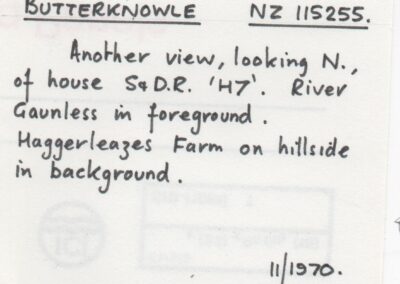 BUTTERKNOWLE NZ 115255.
Another view, looking N.,
of house S&D.R. 'H7'. River
Gaunless in foreground.
Haggerleazes Farm on hillside
in background.
11/1970.